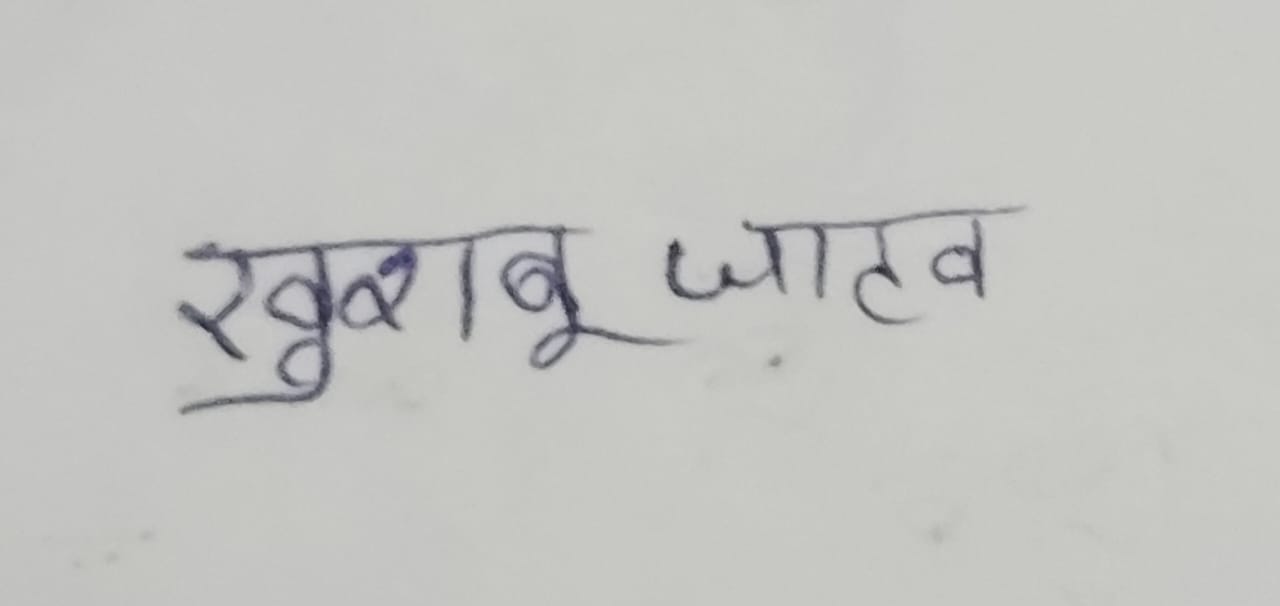 खुशबू जाटव